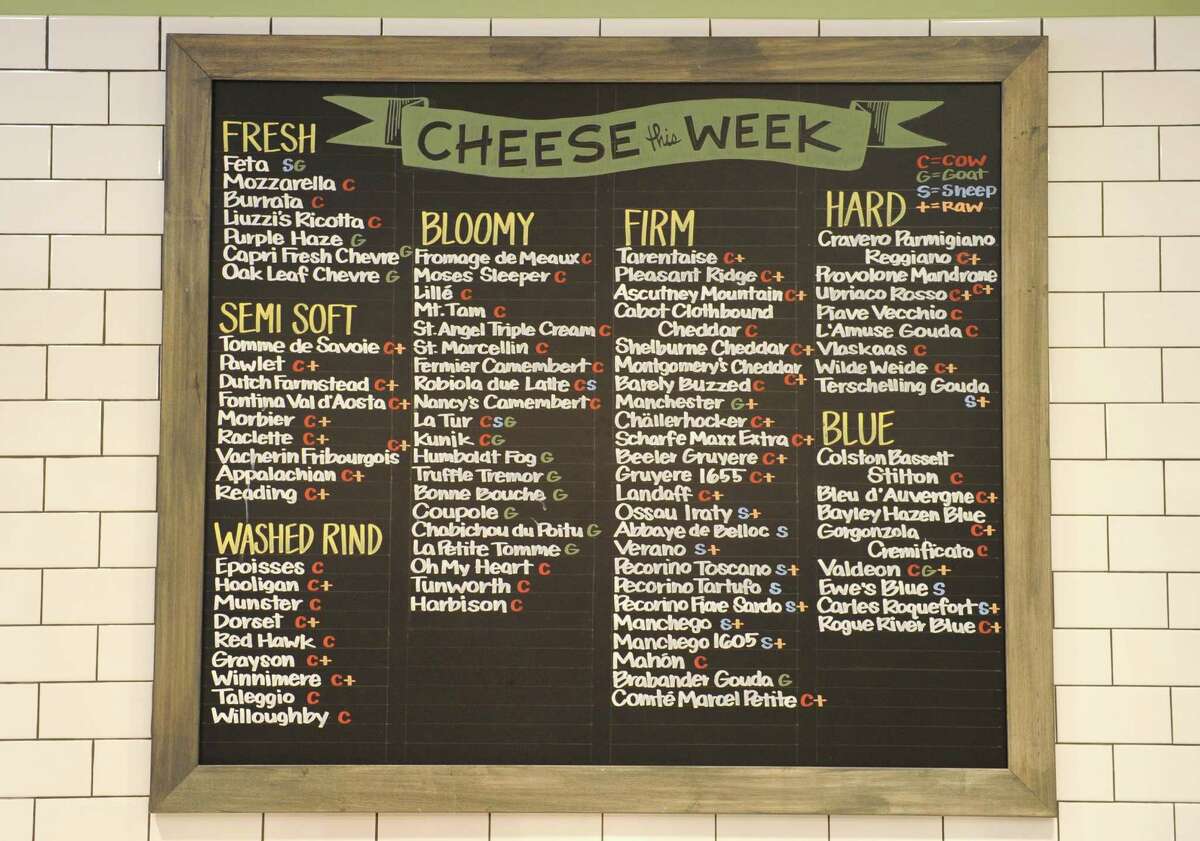 CHEESE this WEEK
C=COW
G=Goat
S=Sheep
+=RAW
FRESH
Feta SG
Mozzarella C
Burrata C
Liuzzi's Ricotta C
Purple Haze G
Capri Fresh Chevre G
Oak Leaf Chevre G
SEMI SOFT
Tomme de Savoie C+
Pawlet C+
Dutch Farmstead C+
Fontina Val d'Aosta C+
Morbier C+
Raclette C+
Vacherin Fribourgois C+
Appalachian C+
Reading C+
WASHED RIND
Epoisses C
Hooligan C+
Munster C
Dorset C+
Red Hawk C
Grayson C+
Winnimere C+
Taleggio C
Willoughby C
BLOOMY
Fromage de Meaux C
Moses Sleeper C
Lillé C
Mt. Tam C
St. Angel Triple Cream C
St. Marcellin C
Fermier Camembert C
Robiola due Latte CS
Nancy's Camembert C
La Tur CSG
Kunik CG
Humboldt Fog G
Truffle Tremor G
Bonne Bouche G
Coupole G
Chabichou du Poitu G
La Petite Tomme G
Oh My Heart C
Tunworth C
Harbison C
FIRM
Tarentaise C+
Pleasant Ridge C+
Ascutney Mountain C+
Cabot Clothbound
Cheddar C
Shelburne Cheddar C+
Montgomery's Cheddar
C+
Barely Buzzed C
Manchester G+
Chällerhocker C+
Scharfe Maxx Extra C+
Beeler Gruyere C+
Gruyere 1655 C+
Landaff C+
Ossau Iraty S+
Abbaye de Belloc S
Verano S+
Pecorino Toscano S+
Pecorino Tartufo S
Pecorino Fiore Sardo S+
Manchego S+
Manchego 1605 S+
Mahón C
Brabander Gouda G
Comté Marcel Petite C+
HARD
Cravero Parmigiano
Reggiano C+
Provolone Mandrone
C+
Ubriaco Rosso C+
Piave Vecchio C
L'Amuse Gouda C
Vlaskaas C
Wilde Weide C+
Terschelling Gouda
S+
BLUE
Colston Bassett
Stilton C
Bleu d'Auvergne C+
Bayley Hazen Blue
C+
Gorgonzola
Cremificato C
Valdeon CG+
Ewe's Blue S
Carles Roquefort S+
Rogue River Blue C+